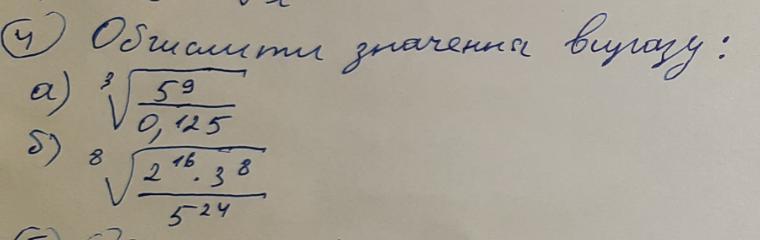 4) Обчислити значення виразу:
а) ∛(5⁹ / 0,125)
б) ⁸√(2¹⁶ · 3⁸ / 5²⁴)